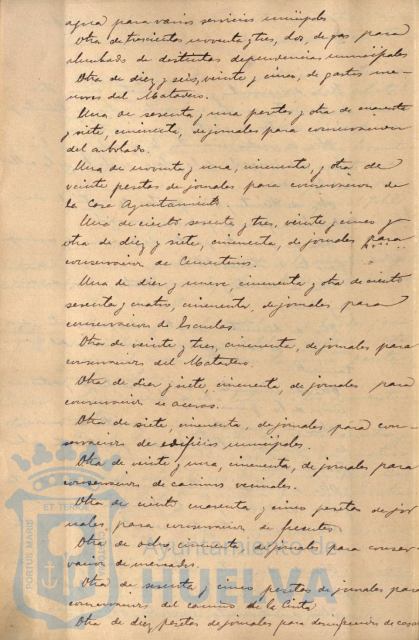 agua para varios servicios municipales
Otra de trescientas noventa y tres, dos, de gas para
alumbrado de distintas dependencias municipales
Otra de diez y seis, veinte y cinco, de gastos me-
nores del Matadero.
Una de sesenta y una pesetas y otra de cuarenta
y siete, cincuenta, de jornales para conservacion
del arbolado.
Una de noventa y una, cincuenta, y otra de
veinte pesetas de jornales para conservacion de
la Casa Ayuntamiento.
Una de ciento sesenta y tres, veinte y cinco y
otra de diez y siete, cincuenta, de jornales para
conservacion de Cementerios.
Una de diez y nueve, cincuenta y otra de ciento
sesenta y cuatro, cincuenta, de jornales para
conservacion de Escuelas.
Otra de veinte y tres, cincuenta, de jornales para
conservacion del Matadero.
Otra de diez y siete, cincuenta, de jornales para
conservacion de aceras.
Otra de siete, cincuenta, de jornales para con-
servacion de edificios municipales.
Otra de veinte y una, cincuenta, de jornales para
conservacion de caminos vecinales.
Otra de ciento cuarenta y cinco pesetas de jor-
nales para conservacion de fuentes.
Otra de ocho, cincuenta, de jornales para conser-
vacion de mercados.
Otra de sesenta y cinco pesetas de jornales para
conservacion del camino de la Cinta
Otra de diez pesetas de jornales para
PORTUS MARIS
ET TERRE
Ayuntamiento de
HUELVA